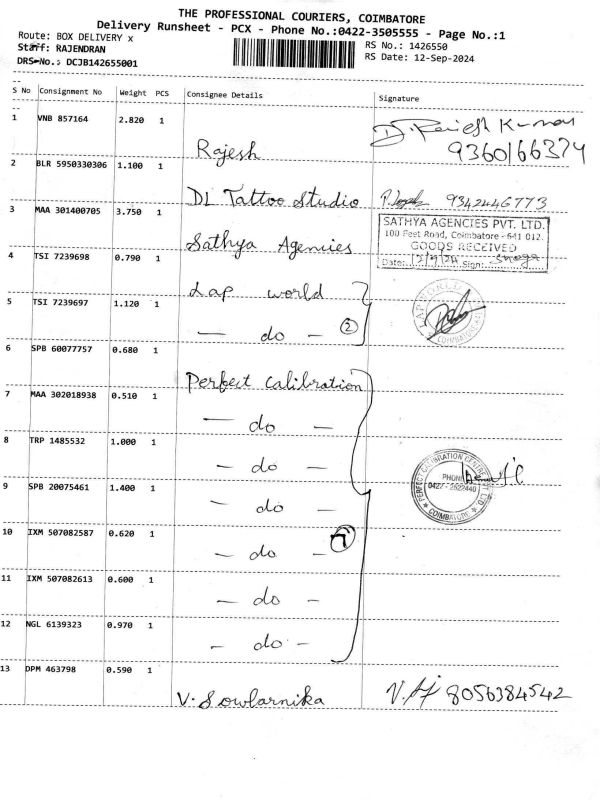 THE PROFESSIONAL COURIERS, COIMBATORE
Delivery Runsheet - PCX - Phone No.:0422-3505555 - Page No.:1
Route: BOX DELIVERY x
Staff: RAJENDRAN
DRS-No.: DCJB142655001
RS No.: 1426550
RS Date: 12-Sep-2024
S No Consignment No Weight PCS Consignee Details Signature
1 VNB 857164 2.820 1 Rajesh D. Rajesh Kumar 9360166374
2 BLR 5950330306 1.100 1 DL Tattoo Studio 9342446773
3 MAA 301400705 3.750 1 Sathya Agencies
SATHYA AGENCIES PVT. LTD.
100 Feet Road, Coimbatore - 641 012.
GOODS RECEIVED
Date: 12/9/24 Sign:
4 TSI 7239698 0.790 1 Lap world
5 TSI 7239697 1.120 1 — do — 2
LAP WORLD
COIMBATORE
6 SPB 60077757 0.680 1 Perfect Calibration
7 MAA 302018938 0.510 1 — do —
8 TRP 1485532 1.000 1 — do —
PERFECT CALIBRATION CENTRE PVT LTD.
PHONE
0422-2522440
COIMBATORE
9 SPB 20075461 1.400 1 — do —
10 IXM 507082587 0.620 1 — do — 7
11 IXM 507082613 0.600 1 — do —
12 NGL 6139323 0.970 1 — do —
13 DPM 463798 0.590 1 V. Sowlarnika 8056384542